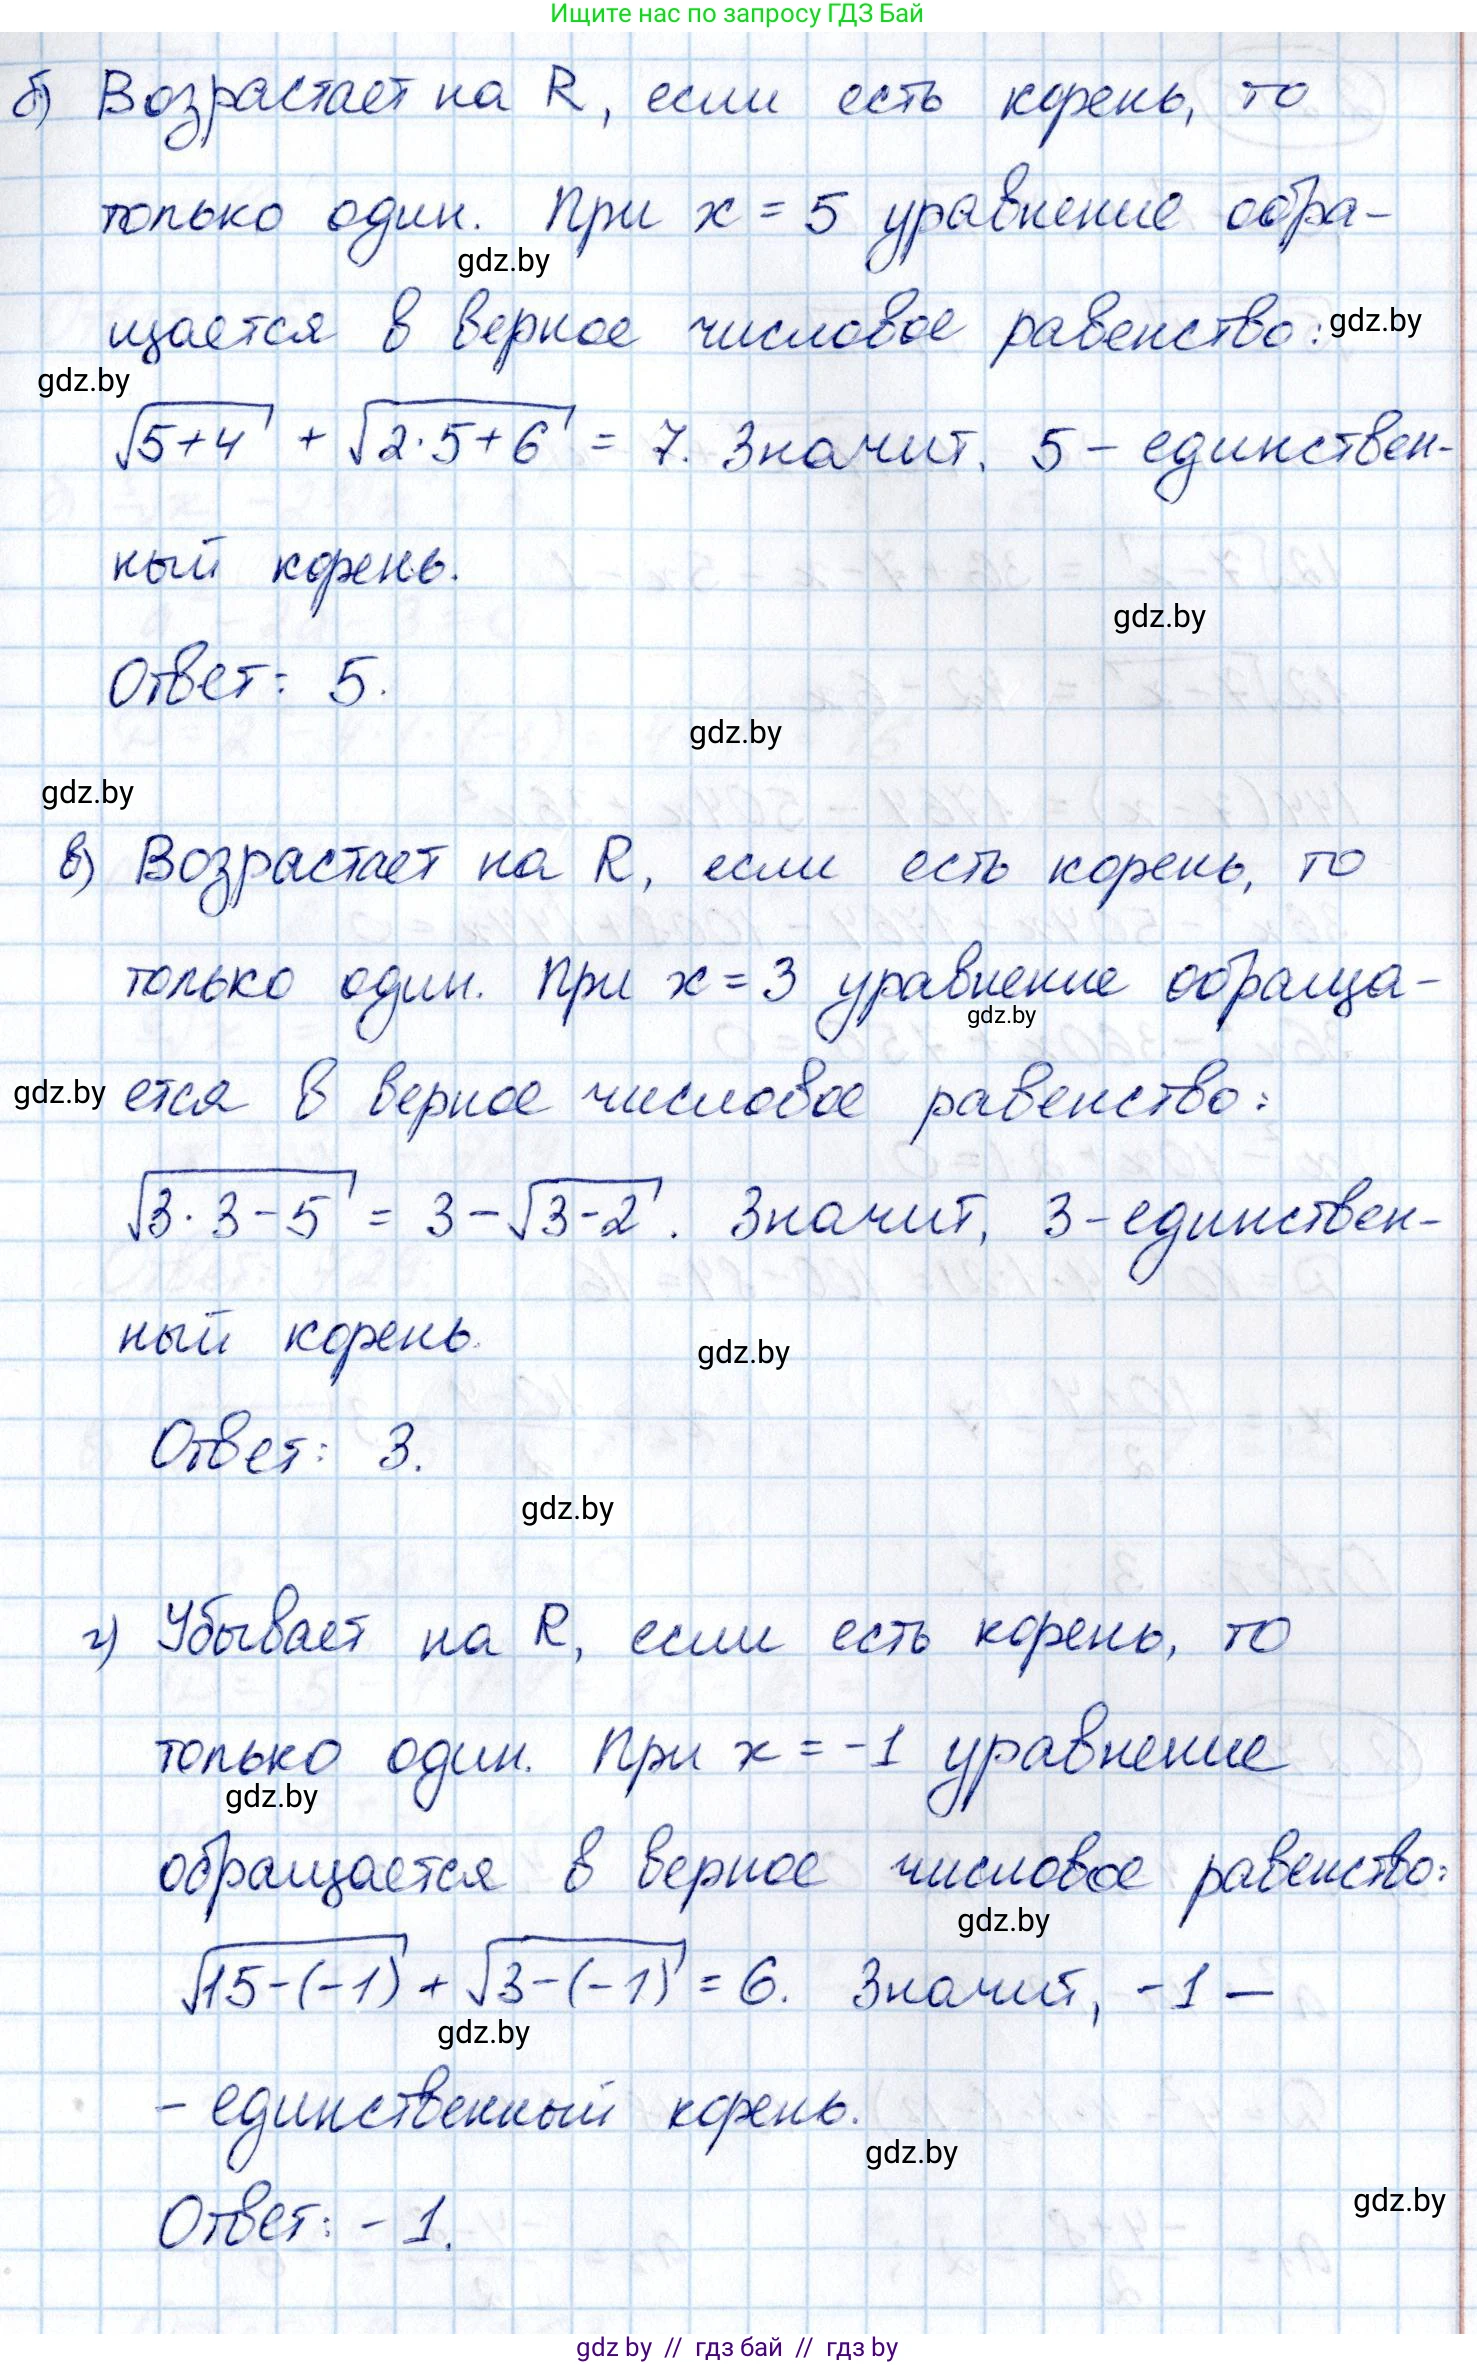 Ищите нас по запросу ГДЗ Бай
б) Возрастает на R, если есть корень, то
только один. При x = 5 уравнение обра-
gdz.by
щается в верное числовое равенство:
gdz.by
gdz.by
√5+4 + √2·5+6 = 7. Значит, 5 - единствен-
ный корень.
gdz.by
Ответ: 5.
gdz.by
gdz.by
в) Возрастает на R, если есть корень, то
только один. При x = 3 уравнение обраща-
gdz.by
gdz.by
ется в верное числовое равенство:
√3·3-5 = 3 - √3-2. Значит, 3 - единствен-
ный корень.
gdz.by
Ответ: 3.
gdz.by
г) Убывает на R, если есть корень, то
только один. При x = -1 уравнение
gdz.by
обращается в верное числовое равенство:
gdz.by
√15-(-1) + √3-(-1) = 6. Значит, -1 —
gdz.by
- единственный корень.
gdz.by
gdz.by
Ответ: -1.
gdz.by // гдз бай // гдз by